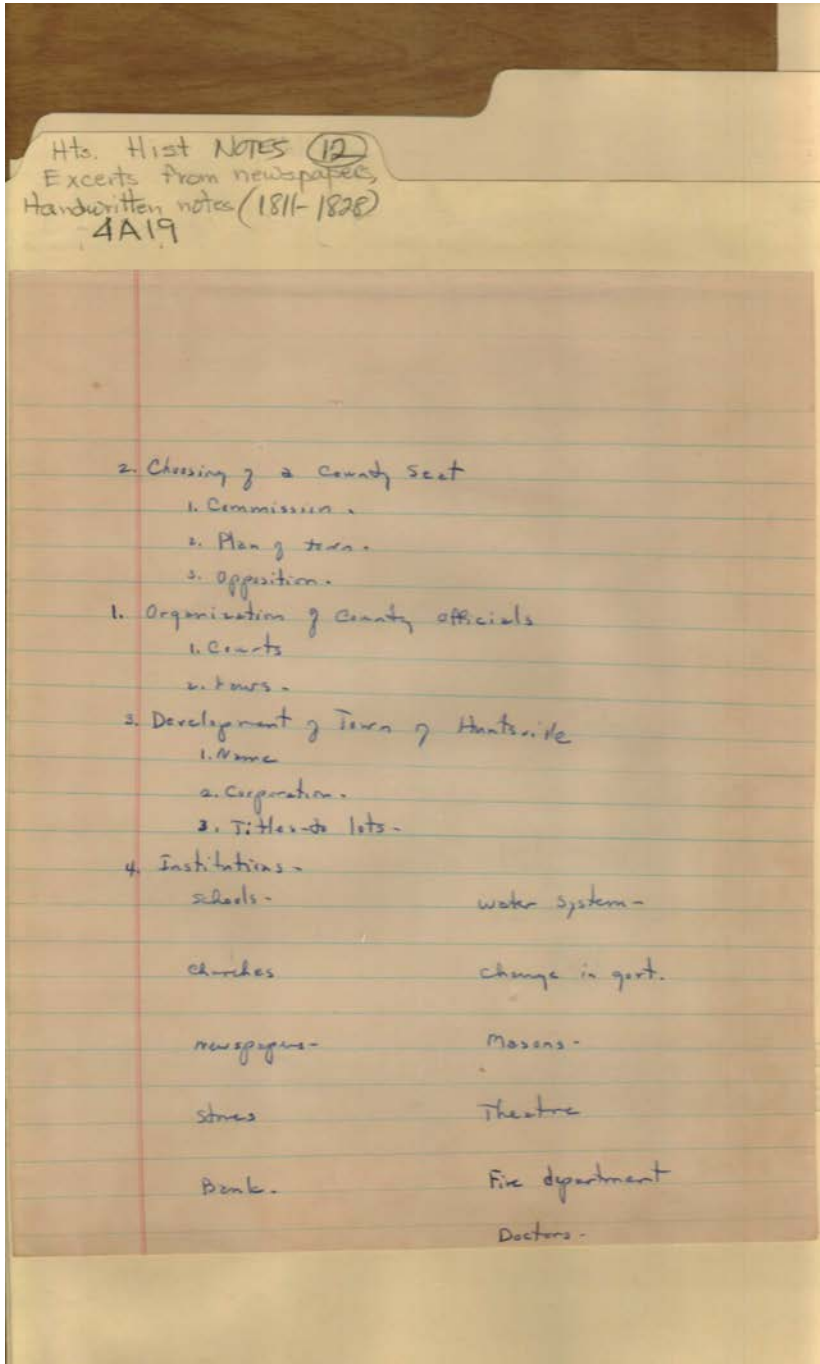 Hts. Hist NOTES 12
Excerts from newspapers,
Handwritten notes (1811-1828)
4A19
2. Choosing of a County Seat
1. Commission.
2. Plan of town.
3. Opposition.
1. Organization of County officials
1. Courts
2.
3. Development of Town of Huntsville
1. Name
2. Corporation.
3. Titles to lots-
4. Institutions-
schools- water system-
churches change in govt.
newspapers- Masons-
stores Theatre
Bank. Fire department
Doctors-